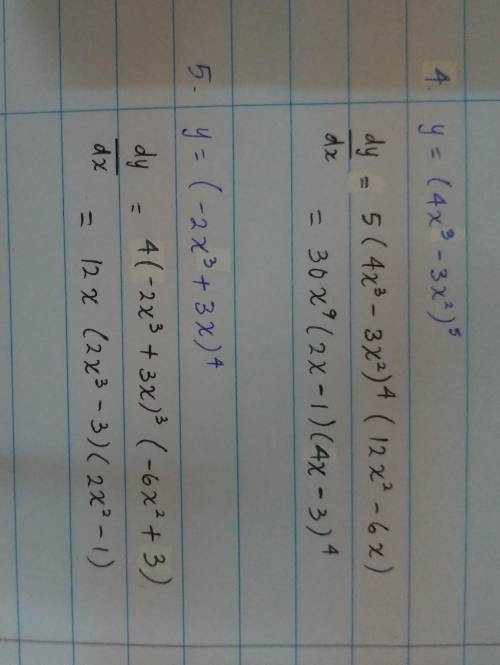 4. y = (4x³ - 3x²)⁵
dy/dx = 5(4x³ - 3x²)⁴ (12x² - 6x)
= 30x⁹(2x - 1)(4x - 3)⁴
5. y = (-2x³ + 3x)⁴
dy/dx = 4(-2x³ + 3x)³ (-6x² + 3)
= 12x (2x³ - 3)(2x² - 1)